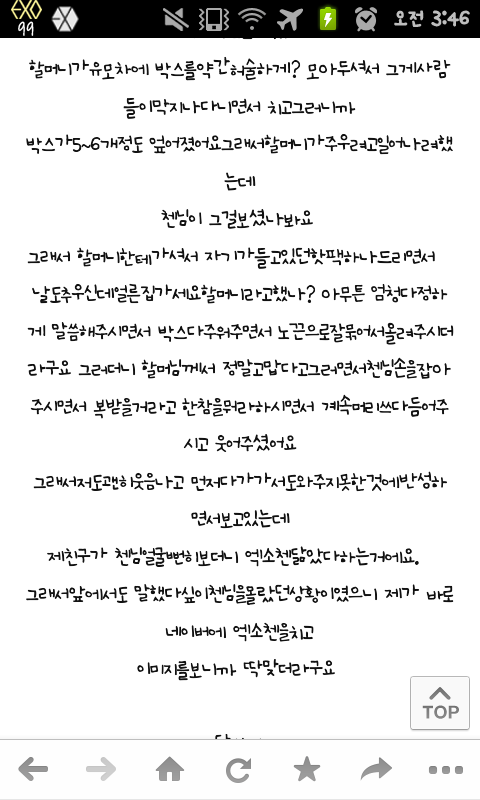 EXO
99
오전 3:46
할머니가유모차에 박스를약간허술하게? 모아두셔서 그게사람
들이막지나다니면서 치고그러니까
박스가5~6개정도 엎어졌어요그래서할머니가주우려고일어나려했
는데
첸님이 그걸보셨나봐요
그래서 할머니한테가셔서 자기가들고있던핫팩하나드리면서
날도추우신데얼른집가세요할머니라고했나? 아무튼 엄청다정하
게 말씀해주시면서 박스다주워주면서 노끈으로잘묶어서올려주시더
라구요 그러더니 할머님께서 정말고맙다고그러면서첸님손을잡아
주시면서 복받을거라고 한참을뭐라하시면서 계속머리쓰다듬어주
시고 웃어주셨어요
그래서저도괜히웃음나고 먼저다가가서도와주지못한것에반성하
면서보고있는데
제친구가 첸님얼굴뻔히보더니 엑소첸닮았다하는거에요.
그래서앞에서도 말했다싶이첸님을몰랐던상황이였으니 제가 바로
네이버에 엑소첸을치고
이미지를보니까 딱맞더라구요
TOP